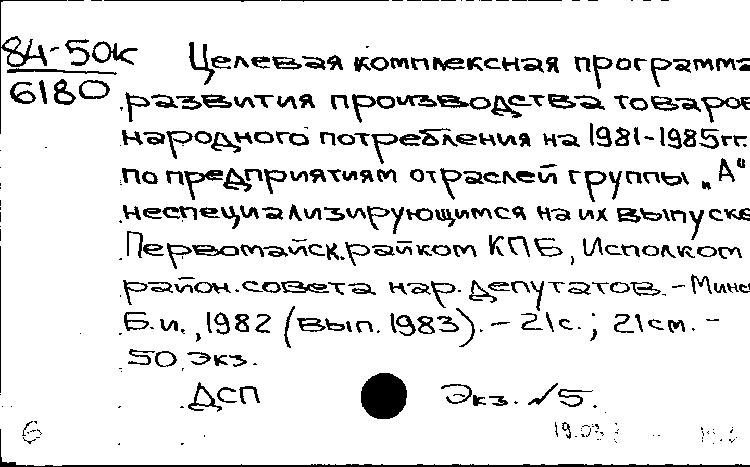 84-50к Целевая комплексная программа
6180 развития производства товаров
народного потребления на 1981-1985гг.
по предприятиям отраслей группы „А“
неспециализирующимся на их выпуске
Первомайск.райком КПБ, Исполком
район.совета нар.депутатов.-Минск
Б.и.,1982 (вып.1983).-21с.; 21см.-
50 экз.
ДСП Экз.№5.
6 19.03